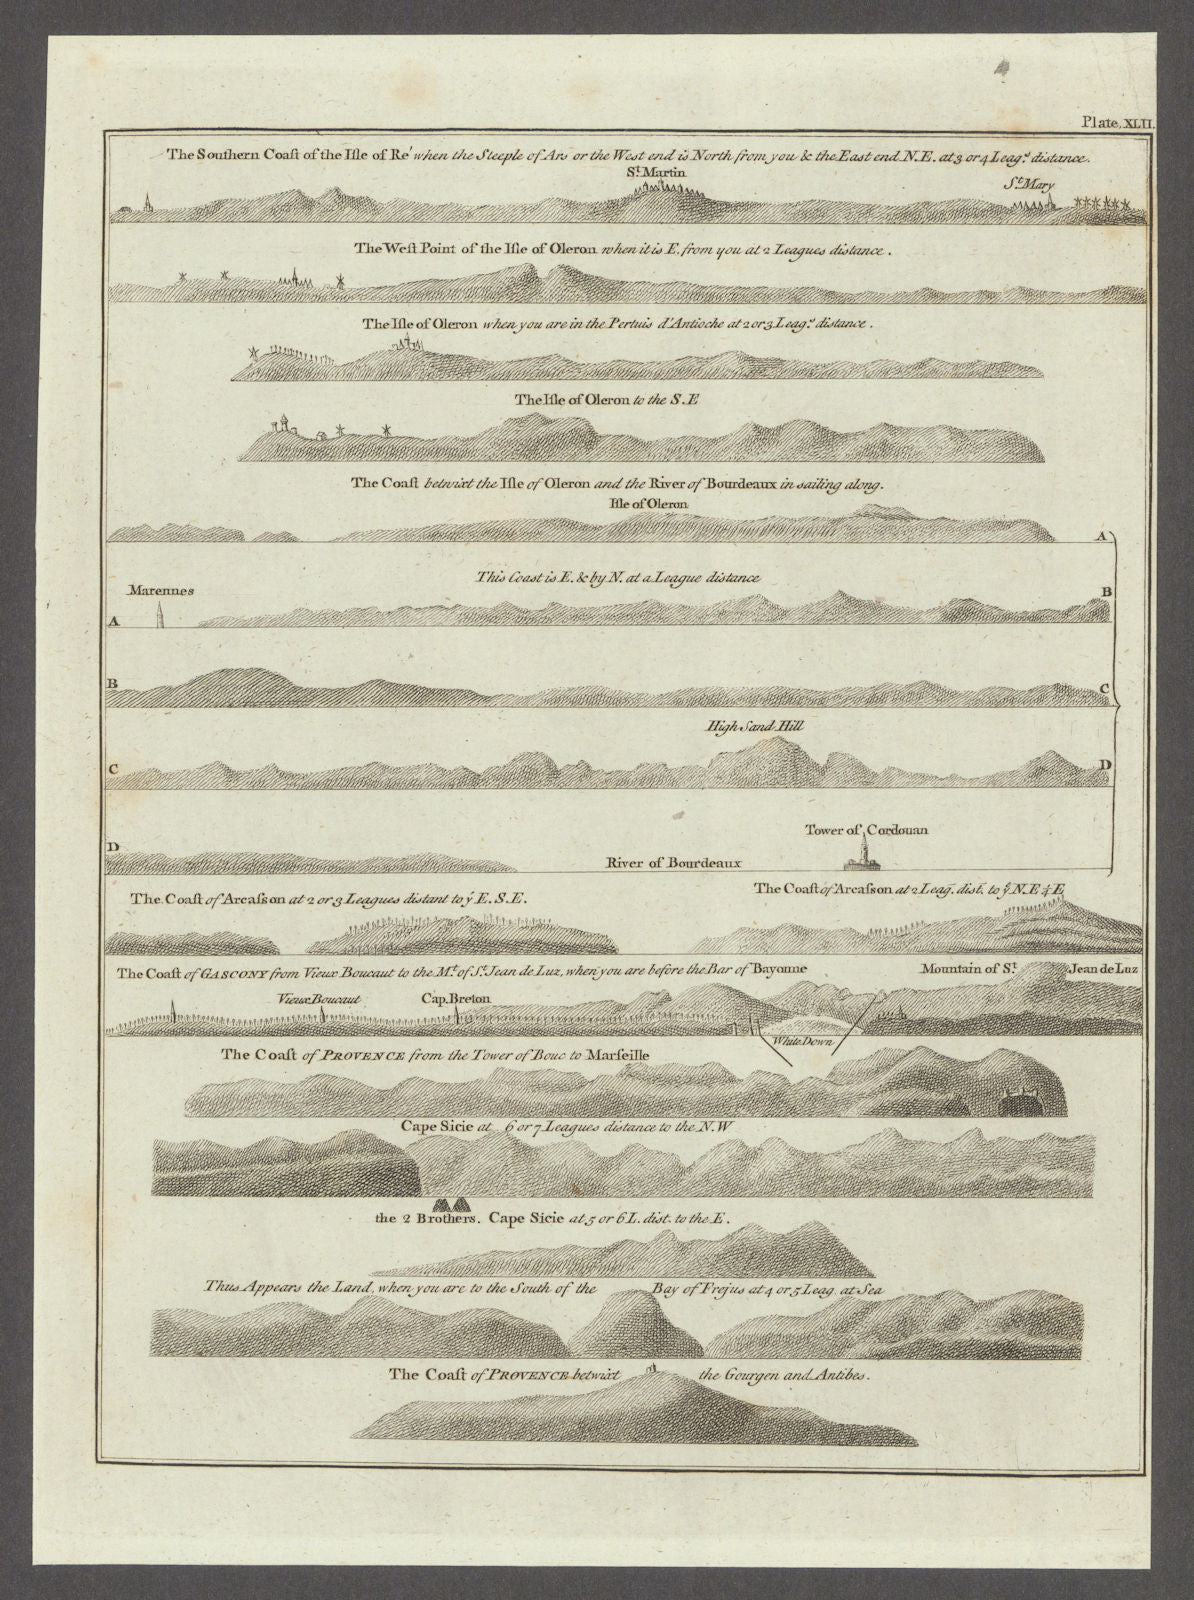 Plate. XLII.
The Southern Coaſt of the Iſle of Re' when the Steeple of Ars or the West end is North from you & the East end N.E. at 3 or 4 Leag.s distance.
St. Martin
St. Mary
The Weſt Point of the Iſle of Oleron when it is E. from you at 2 Leagues distance.
The Iſle of Oleron when you are in the Pertuis d'Antioche at 2 or 3 Leag.s distance.
The Iſle of Oleron to the S.E
The Coaſt betwixt the Iſle of Oleron and the River of Bourdeaux in sailing along.
Iſle of Oleron
A
This Coast is E. & by N. at a League distance
Marennes
B
A
B
C
High Sand Hill
C
D
Tower of Cordouan
D
River of Bourdeaux
The Coaſt of Arcaſson at 2 or 3 Leagues distant to ẏ E. S.E.
The Coaſt of Arcaſson at 2 Leag. dist. to ẏ N.E ¼ E
The Coaſt of GASCONY from Vieux Boucaut to the Mt. of St. Jean de Luz, when you are before the Bar of Bayonne
Mountain of St. Jean de Luz
Vieux Boucaut
Cap. Breton
White Down
The Coaſt of PROVENCE from the Tower of Bouc to Marſeille
Cape Sicie at 6 or 7 Leagues distance to the N.W
the 2 Brothers. Cape Sicie at 5 or 6 L. dist. to the E.
Thus Appears the Land, when you are to the South of the Bay of Frejus at 4 or 5 Leag. at Sea
The Coaſt of PROVENCE betwixt the Gourgen and Antibes.